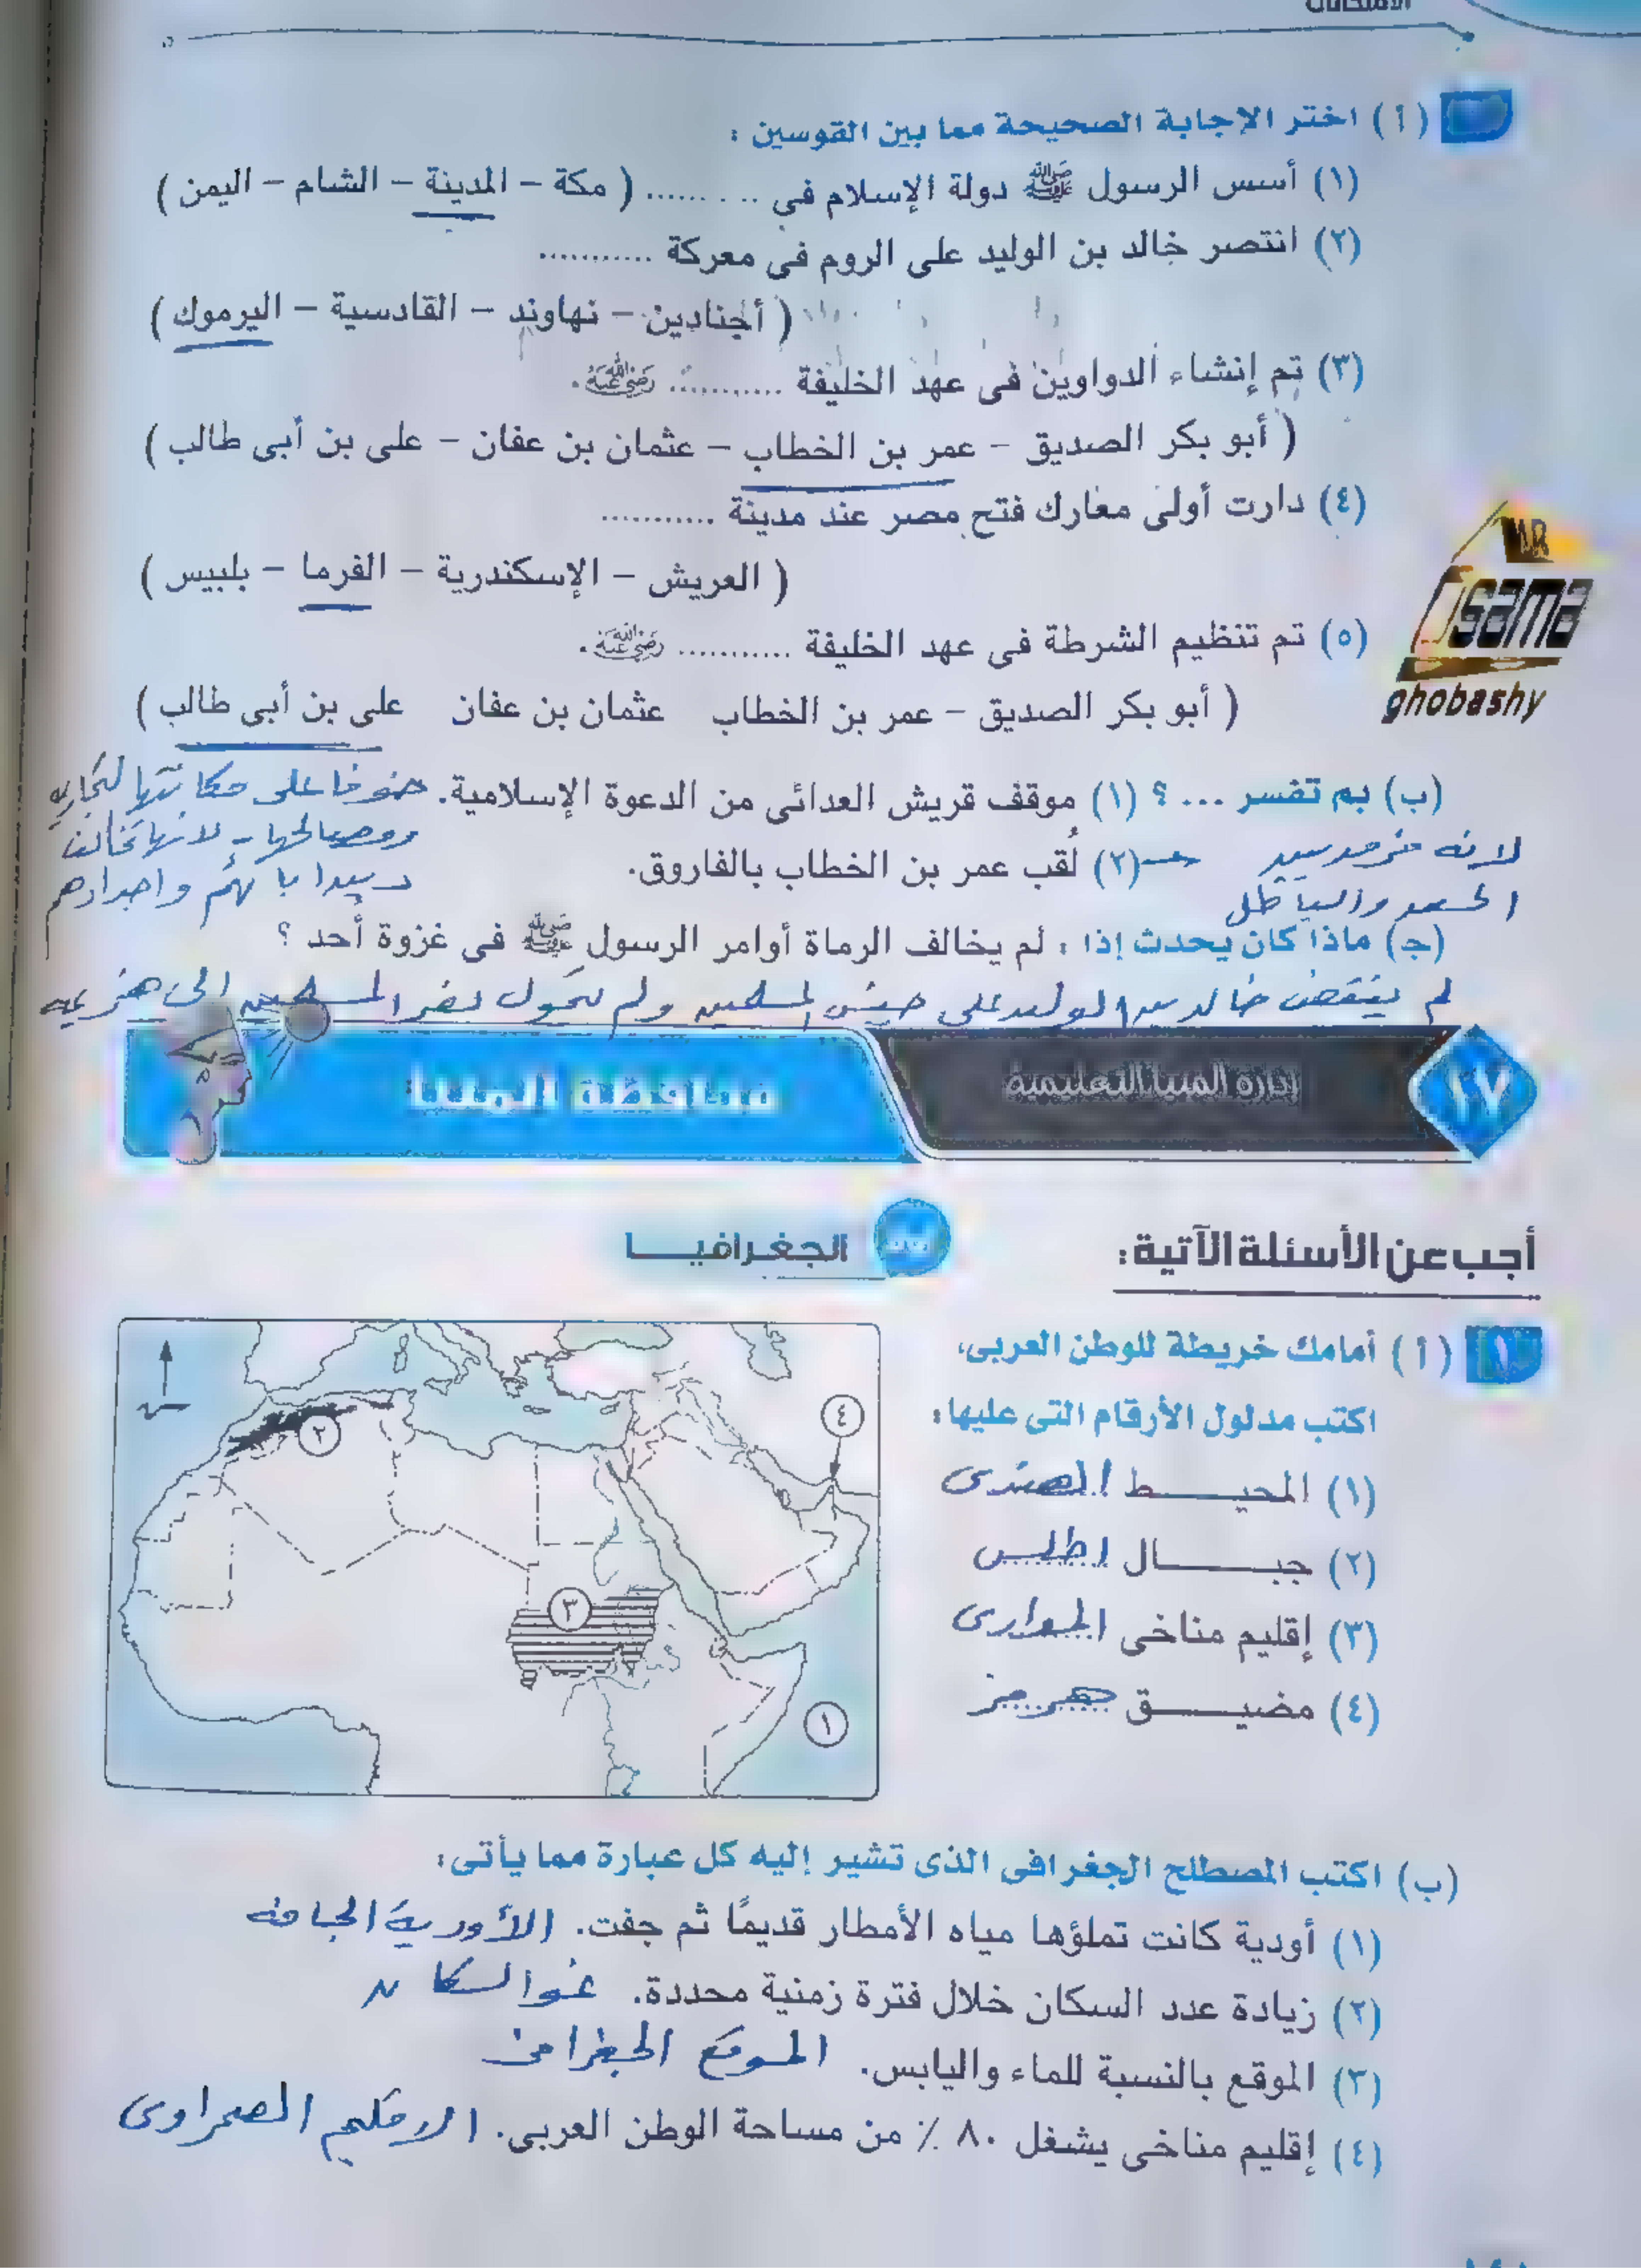 (أ) اختر الإجابة الصحيحة مما بين القوسين :
(١) أسس الرسول ﷺ دولة الإسلام في .......... ( مكة – المدينة – الشام – اليمن )
(٢) انتصر خالد بن الوليد على الروم فى معركة ...........
( أجنادين – نهاوند – القادسية – اليرموك )
(٣) تم إنشاء الدواوين فى عهد الخليفة ........... رضي الله عنه.
( أبو بكر الصديق – عمر بن الخطاب – عثمان بن عفان – على بن أبى طالب )
(٤) دارت أولى معارك فتح مصر عند مدينة ...........
( العريش – الإسكندرية – الفرما – بلبيس )
(٥) تم تنظيم الشرطة فى عهد الخليفة ........... رضي الله عنه.
( أبو بكر الصديق – عمر بن الخطاب عثمان بن عفان على بن أبى طالب )
MR
Osama
ghobashy
(ب) بم تفسر ... ؟ (١) موقف قريش العدائى من الدعوة الإسلامية. خوفا على مكانتها التجارية
ومصالحها - لانها تخالف
(٢) لُقب عمر بن الخطاب بالفاروق. لانه فرق بين
الحق والباطل
دين ابائهم واجدادهم
(ج) ماذا كان يحدث إذا : لم يخالف الرماة أوامر الرسول ﷺ فى غزوة أحد ؟
لم ينقض خالد بن الوليد على جيش المسلمين ولم يتحول نصر المسلمين الى هزيمة
١٧ إدارة المنيا التعليمية محافظة المنيا
أجب عن الأسئلة الآتية:
الجغرافيـــا
١ (أ) أمامك خريطة للوطن العربى،
اكتب مدلول الأرقام التى عليها:
(١) المحيـــط الهندى
(٢) جبـــال اطلس
(٣) إقليم مناخى الموارى
(٤) مضيـــق هرمز
٤
٢
٣
١
(ب) اكتب المصطلح الجغرافى الذى تشير إليه كل عبارة مما يأتى:
(١) أودية كانت تملؤها مياه الأمطار قديمًا ثم جفت. الأودية الجافة
(٢) زيادة عدد السكان خلال فترة زمنية محددة. نمو السكان
(٣) الموقع بالنسبة للماء واليابس. الموقع الجغرافى
(٤) إقليم مناخى يشغل ٨٠ ٪ من مساحة الوطن العربى. الاقليم الصحراوى